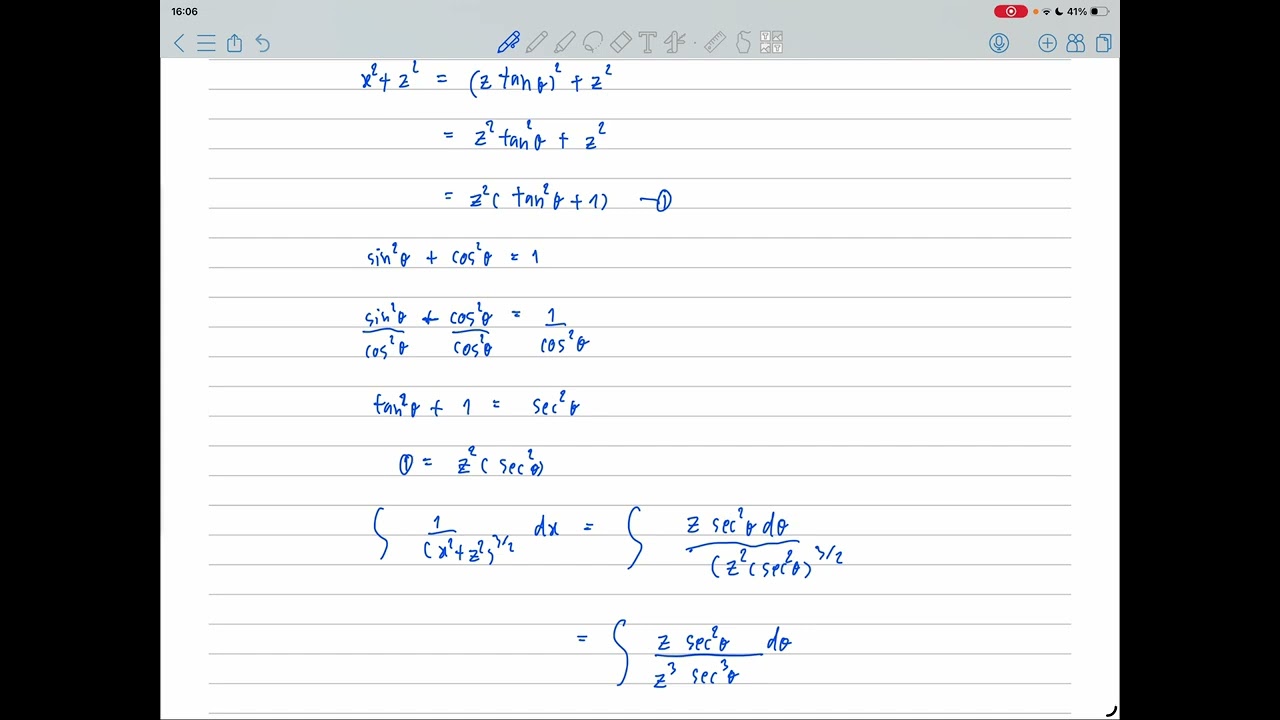 16:06
41%
x² + z² = (z tan θ)² + z²
= z² tan² θ + z²
= z² ( tan² θ + 1) —①
sin² θ + cos² θ = 1
sin² θ / cos² θ + cos² θ / cos² θ = 1 / cos² θ
tan² θ + 1 = sec² θ
① = z² ( sec² θ)
∫ 1 / (x² + z²)^3/2 dx = ∫ z sec² θ dθ / (z² (sec² θ)^3/2
= ∫ z sec² θ / z³ sec³ θ dθ